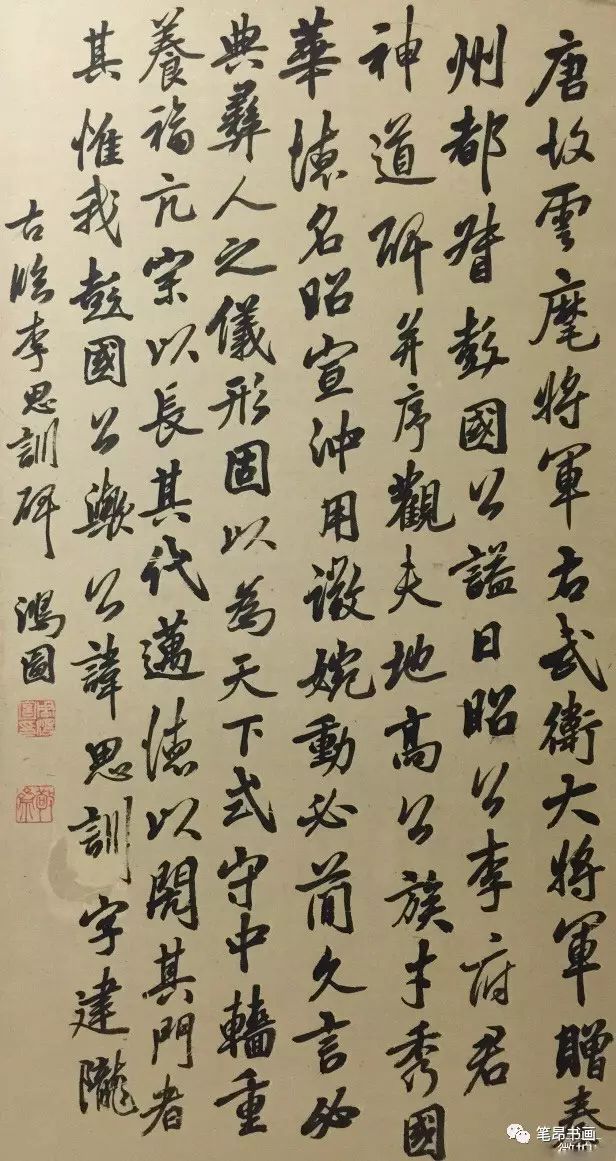 唐故雲麾將軍右武衛大將軍贈秦
州都督彭國公謚曰昭公李府君
神道碑并序觀夫地高公族才秀國
華德名昭宣沖用微婉動必簡久言必
典彝人之儀形固以為天下式守中轖重
養福亢宗以長其代邁德以其門者
其惟我彭國公歟公諱思訓字建隴
古臨李思訓碑 鴻圖
笔昂书画